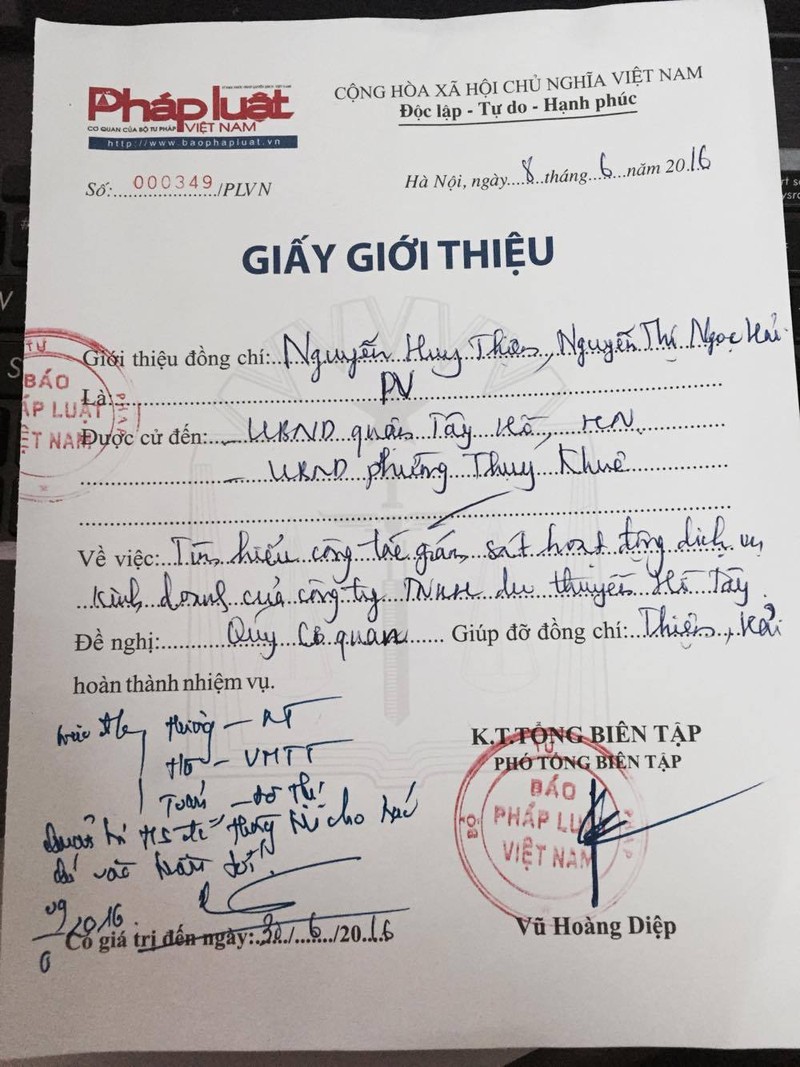 Pháp luật
CƠ QUAN CỦA BỘ TƯ PHÁP VIỆT NAM
http://www.baophapluat.vn
CỘNG HÒA XÃ HỘI CHỦ NGHĨA VIỆT NAM
Độc lập - Tự do - Hạnh phúc
Số:..000349../PLVN
Hà Nội, ngày...8...tháng...6...năm 2016
GIẤY GIỚI THIỆU
Giới thiệu đồng chí: Nguyễn Huy Thiện, Nguyễn Thị Ngọc Hải
Là PV
Được cử đến: - UBND quận Tây Hồ, HN
- UBND phường Thụy Khuê
Về việc: Tìm hiểu công tác giám sát hoạt động dịch vụ
kinh doanh của công ty TNHH du thuyền Hồ Tây
Đề nghị: Quý Cơ quan Giúp đỡ đồng chí: Thiện, Hải
hoàn thành nhiệm vụ.
K.T.TỔNG BIÊN TẬP
PHÓ TỔNG BIÊN TẬP
BÁO
PHÁP LUẬT
VIỆT NAM
- VMTT
Tuấn - đô thị
Vũ Hoàng Diệp
Có giá trị đến ngày: 30/6/2016